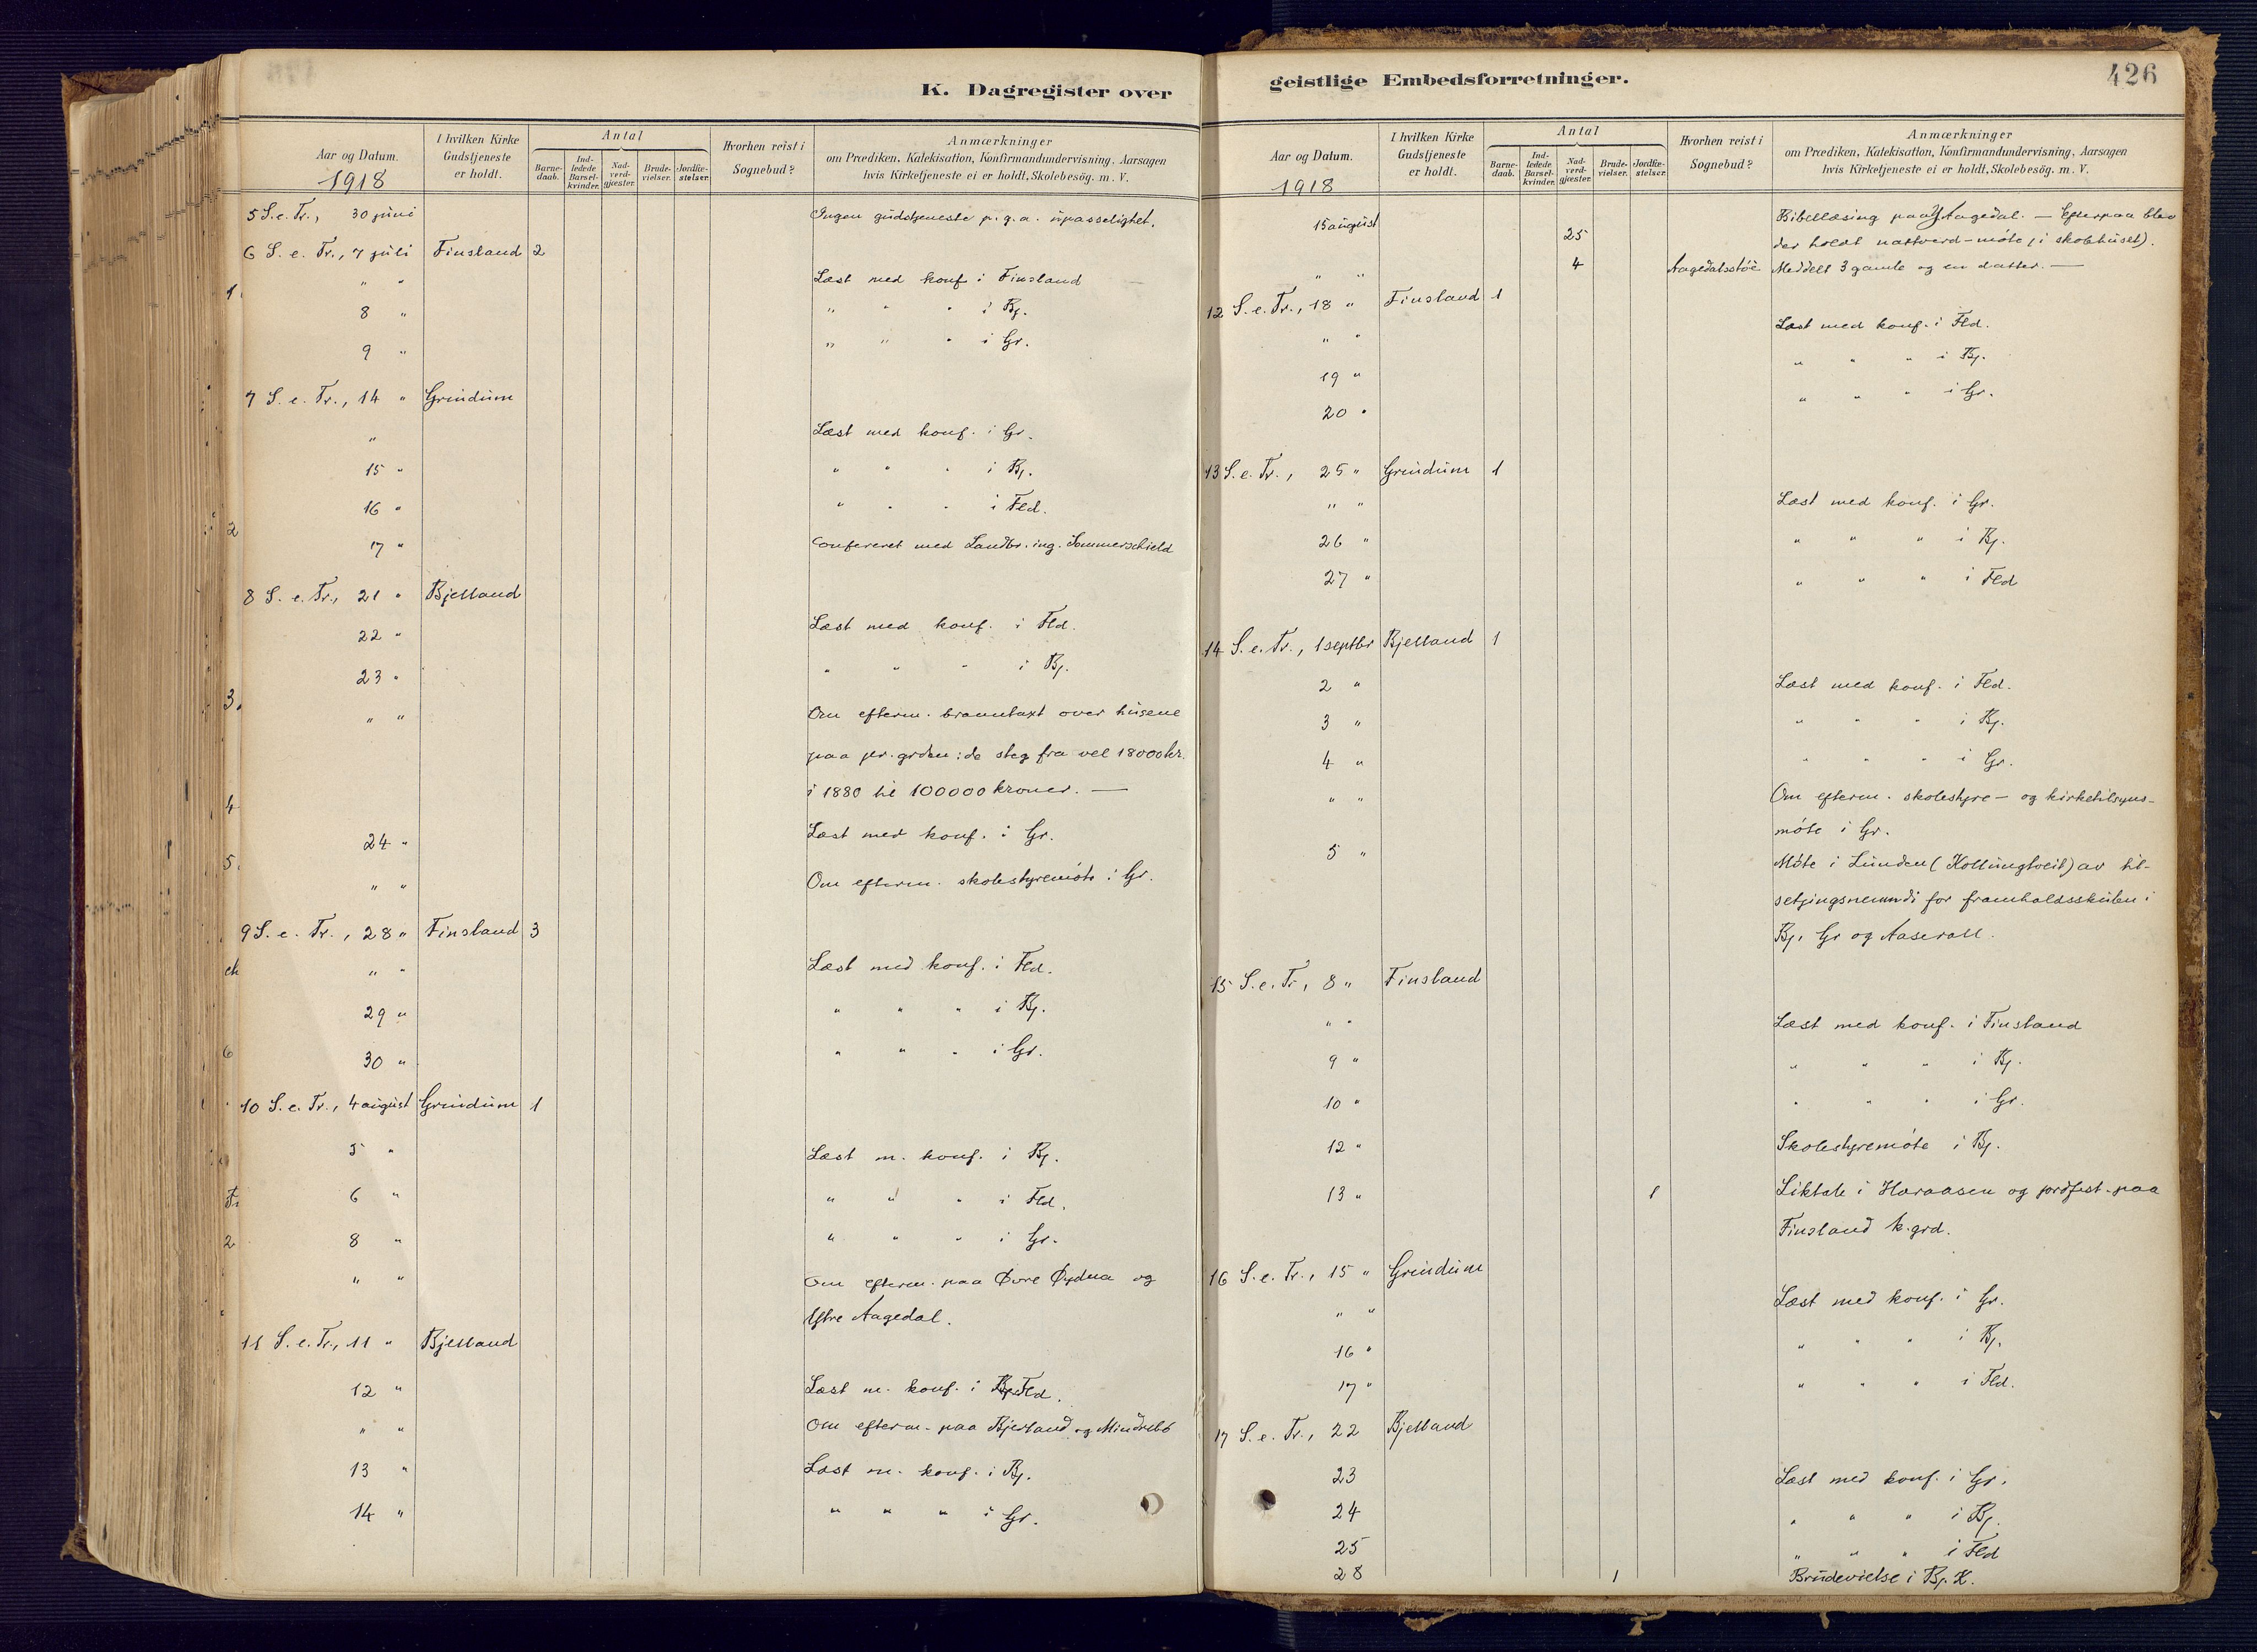 K. Dagregister over
Aar og Datum.
1918
I hvilken Kirke Gudstjeneste er holdt.
Antal
Barne-daab.
Ind-ledede Barsel-kvinder.
Nad-verd-gjester.
Brude-vielser.
Jordfæ-stelser.
Hvorhen reist i Sognebud?
Anmærkninger
om Prædiken, Katekisation, Konfirmandundervisning, Aarsagen
hvis Kirketjeneste ei er holdt, Skolebesög. m. V.
5 S. e. Tr., 30 juni Ingen gudstjeneste p. g. a. upasselighet.
6 S. e. Tr., 7 juli Finsland 2
" " Læst med konf. i Finsland
8 " " " " i Bj.
9 " " " " i Gr.
7 S. e. Tr., 14 " Grindum
" Læst med konf. i Gr.
15 " " " " i Bj.
16 " " " " i Fld.
17 " Confereret med Landbr. ing. Sommerschield
8 S. e. Tr., 21 " Bjelland
22 " Læst med konf. i Fld.
23 " " " " i Bj.
" " Om efterm. branntaxt over husene
paa pr. grden: de steg fra vel 18000 kr.
i 1880 til 100000 kroner. —
24 " Læst med konf. i Gr.
" " Om efterm. skolestyremöte i Gr.
9 S. e. Tr., 28 " Finsland 3
" " Læst med konf. i Fld.
29 " " " " i Bj.
30 " " " " i Gr.
10 S. e. Tr., 4 august Grindum 1
5 " Læst m. konf. i Bj.
6 " " " " i Fld.
8 " " " " i Gr.
" " Om efterm. paa Övre Öydna og
Ytre Aagedal.
11 S. e. Tr., 11 " Bjelland
12 " Læst m. konf. i Fld.
" " Om efterm. paa Bjelland og Mindrebö
13 " Læst m. konf. i Bj.
14 " " " " i Gr.
geistlige Embedsforretninger.
426
Aar og Datum.
1918
I hvilken Kirke Gudstjeneste er holdt.
Antal
Barne-daab.
Ind-ledede Barsel-kvinder.
Nad-verd-gjester.
Brude-vielser.
Jordfæ-stelser.
Hvorhen reist i Sognebud?
Anmærkninger
om Prædiken, Katekisation, Konfirmandundervisning, Aarsagen
hvis Kirketjeneste ei er holdt, Skolebesög. m. V.
15 august 25 Bibellæsing paa Y Aagedal. — Efterpaa blev
der holdt nattverd-möte (i skolehuset).
" " 4 Aagedalsstöe Meddelt 3 gamle og en datter. —
12 S. e. Tr., 18 " Finsland 1
" " Læst med konf. i Fld.
19 " " " " i Bj.
20 " " " " i Gr.
13 S. e. Tr., 25 " Grindum 1
" " Læst med konf. i Gr.
26 " " " " i Bj.
27 " " " " i Fld
14 S. e. Tr., 1 septbr Bjelland 1
2 " Læst med konf. i Fld.
3 " " " " i Bj.
4 " " " " i Gr.
" " Om efterm. skolestyre- og kirketilsyns-
möte i Gr.
5 " Möte i Lunden (Kollungtveit) av til-
setjingsnemndi for framhaldsskulen i
Bj. Gr og Aaserall.
15 S. e. Tr, 8 " Finsland
" " Læst med konf. i Finsland
9 " " " " i Bj.
10 " " " " i Gr.
12 " Skolestyremöte i Bj.
13 " 1 Liktale i Haraasen og jordfest. paa
Finsland k. grd.
16 S. e. Tr., 15 " Grindum
" " Læst med konf. i Gr.
16 " " " " i Bj.
17 " " " " i Fld.
17 S. e. Tr., 22 Bjelland
23 Læst med konf. i Gr.
24 " " " i Bj.
25 " " " i Fld
28 1 Brudevielse i Bj. K.